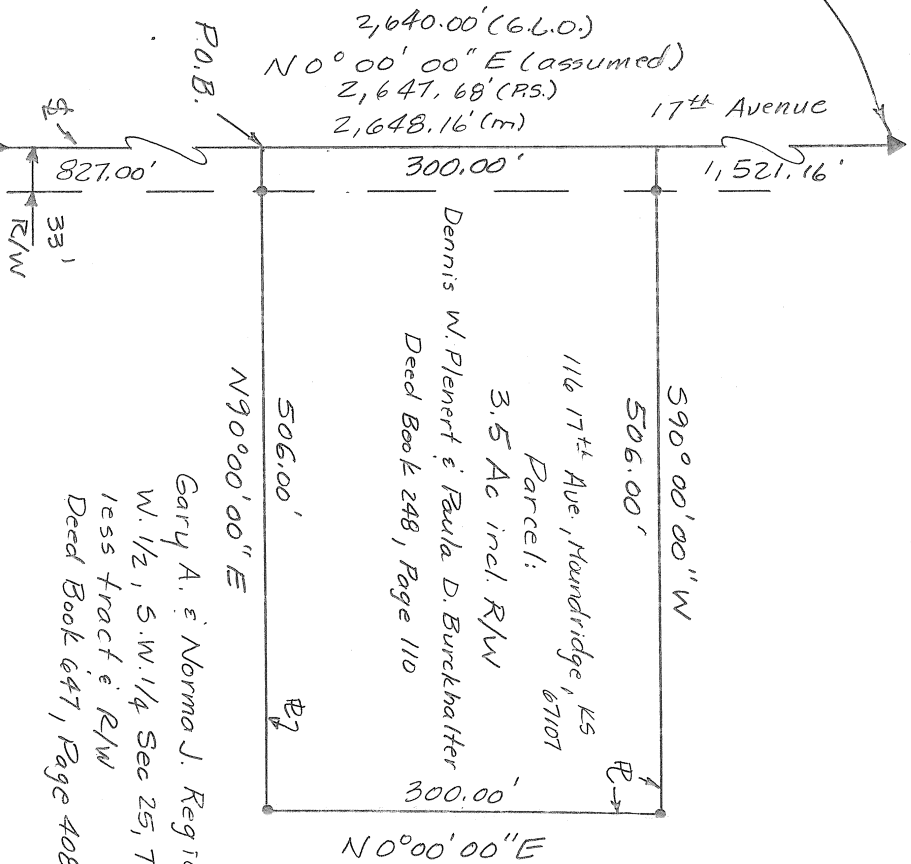 2,640.00' (G.L.O.)
N 0° 00' 00" E (assumed)
2,647.68' (P.S.)
2,648.16' (m)
17th Avenue
P.O.B.
827.00'
300.00'
1,521.16'
33'
R/W
S90° 00' 00" W
506.00'
116 17th Ave., Moundridge, KS
67107
Parcel:
3.5 Ac incl. R/W
Dennis W. Plenert & Paula D. Burckhalter
Deed Book 248, Page 110
506.00'
N90° 00' 00" E
PL
PL
300.00'
N 0° 00' 00" E
Gary A. & Norma J.
W. 1/2, S.W. 1/4 Sec 25, T
less tract & R/W
Deed Book 647, Page 408